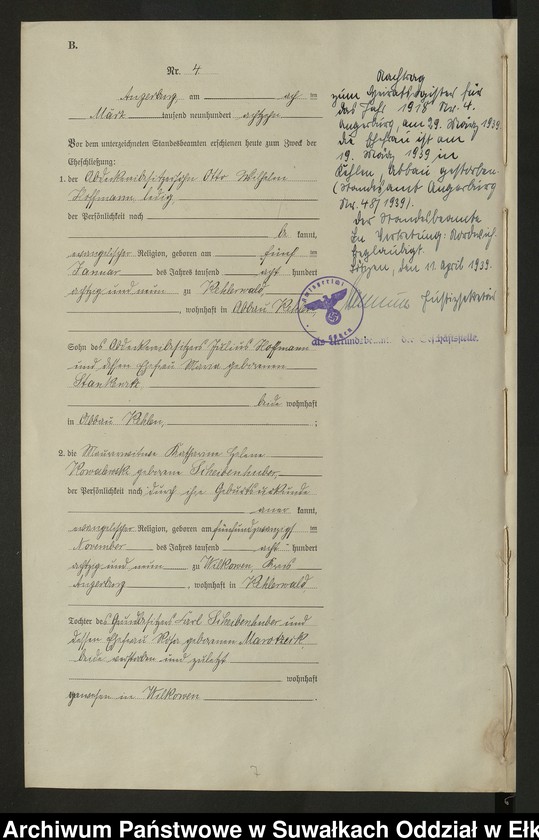 B.
Nr. 4
Angerburg, am acht ten
März tausend neunhundert achtzehn
Vor dem unterzeichneten Standesbeamten erschienen heute zum Zweck der
Eheschließung:
1. der Abdeckereibesitzersohn Otto Wilhelm
Hoffmann ledig
der Persönlichkeit nach
be kannt,
evangelischer Religion, geboren am fünften
Januar des Jahres tausend acht hundert
achtzig und neun zu Kehlerwald
, wohnhaft in Abbau Kehlen,
Sohn des Abdeckereibesitzers Julius Hoffmann
und dessen Ehefrau Maria geborenen
beide wohnhaft
in Abbau Kehlen, ;
2. die Maurerwitwe Katharine Helene
Kowalewski geborene Scheibenhuber,
der Persönlichkeit nach durch ihre Geburtsurkunde
aner kannt,
evangelischer Religion, geboren am fünfundzwanzigsten
November des Jahres tausend acht hundert
achtzig und neun zu Wilkowen, Kreis
Angerburg, wohnhaft in Kehlerwald
Tochter des Grundbesitzers Carl Scheibenhuber und
dessen Ehefrau Rosa geborenen
beide verstorben und zuletzt
wohnhaft
gewesen in Wilkowen.
Nachtrag
zum Heiratsregister für
das Jahr 1918 Nr. 4.
Angerburg, am 29. März 1939.
die Ehefrau ist am
19. März 1939 in
Kehlen, Abbau gestorben.
(Standesamt Angerburg
Nr. 48/1939).
Der Standesbeamte
In Vertretung:
Beglaubigt
Lötzen, den 11. April 1939.
Justizsekretär
als Urkundsbeamter der Geschäftsstelle.
Amtsgericht
Lötzen
Archiwum Państwowe w Suwałkach Oddział w Ełk